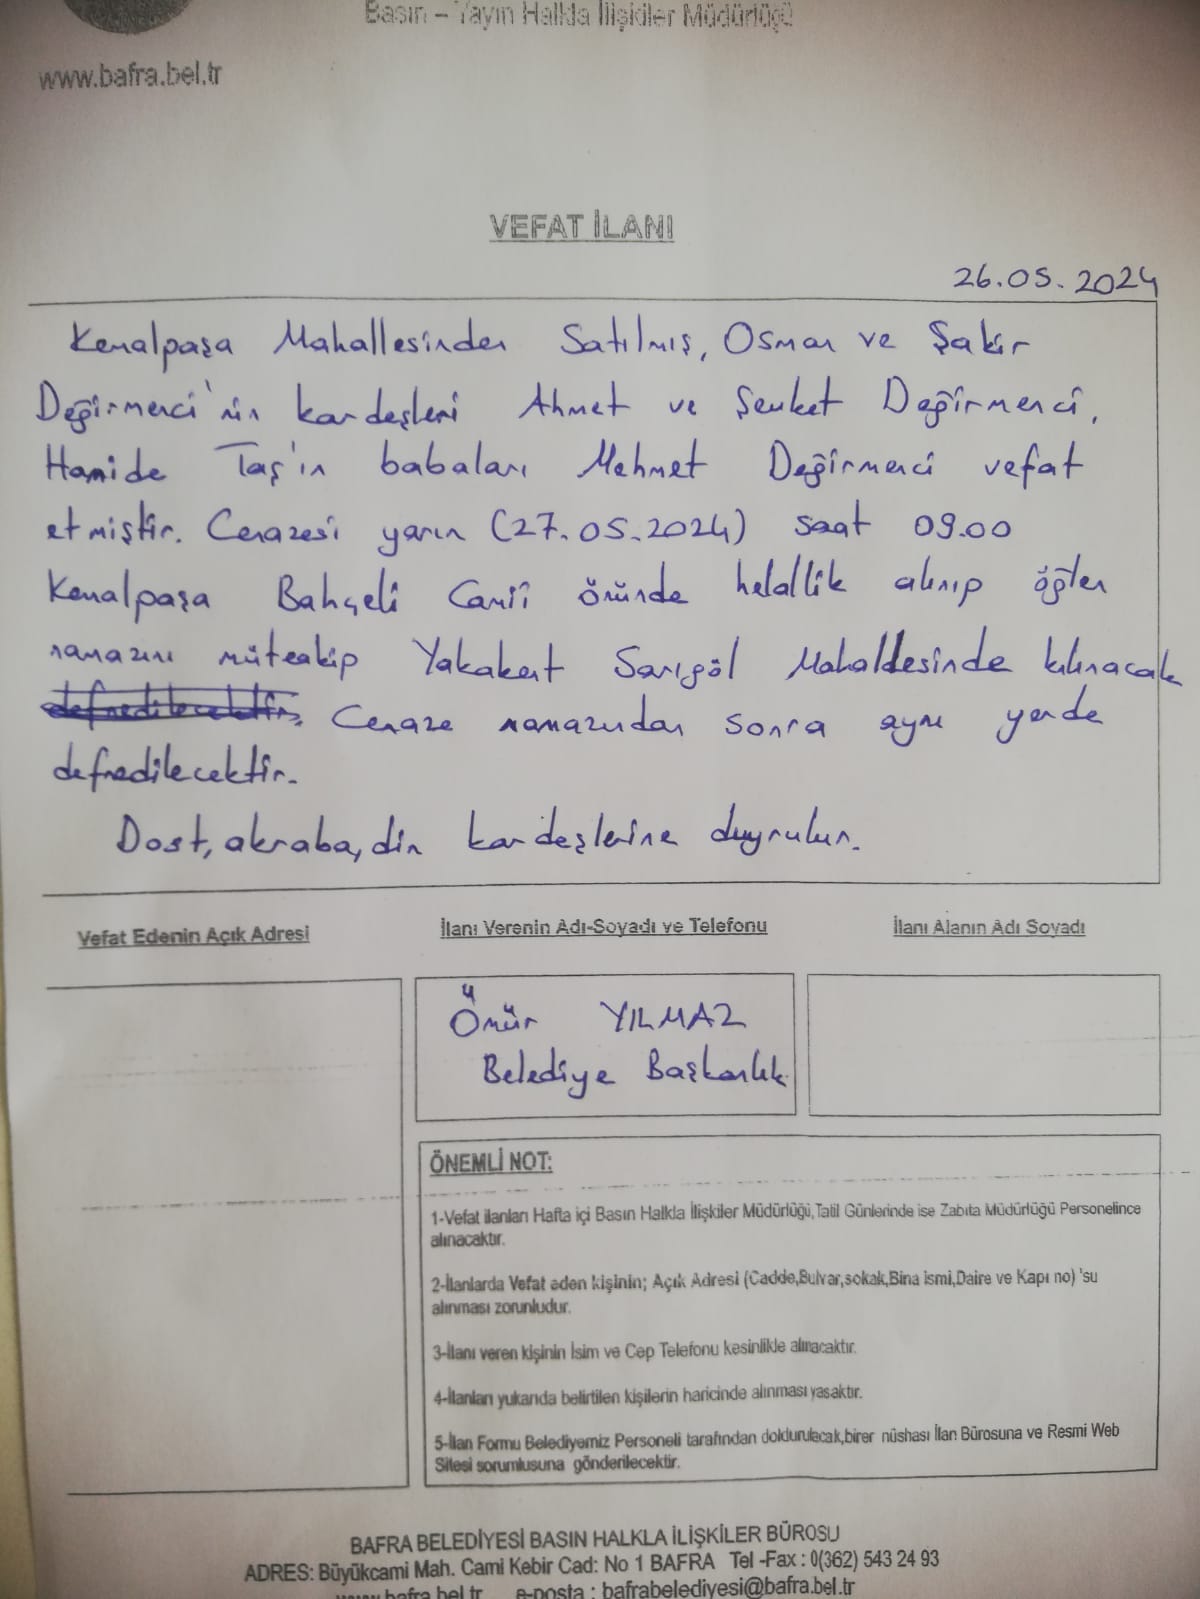 Basın – Yayın Halkla İlişkiler Müdürlüğü
www.bafra.bel.tr
VEFAT İLANI
26.05.2024
Kemalpaşa Mahallesinden Satılmış, Osman ve Şakir
Değirmenci'nin kardeşleri Ahmet ve Şevket Değirmenci,
Hamide Taş'ın babaları Mehmet Değirmenci vefat
etmiştir. Cenazesi yarın (27.05.2024) saat 09.00
Kemalpaşa Bahçeli Camii önünde helallik alınıp öğlen
namazını müteakip Yakakent Sarıgöl Mahallesinde kılınacak
defnedilecektir. Cenaze namazından sonra aynı yerde
defnedilecektir.
Dost, akraba, din kardeşlerine duyrulur.
Vefat Edenin Açık Adresi
İlanı Verenin Adı-Soyadı ve Telefonu
İlanı Alanın Adı Soyadı
Ömür YILMAZ
Belediye Başkanlık
ÖNEMLİ NOT:
1-Vefat ilanları Hafta içi Basın Halkla İlişkiler Müdürlüğü,Tatil Günlerinde ise Zabıta Müdürlüğü Personelince
alınacaktır.
2-İlanlarda Vefat eden kişinin; Açık Adresi (Cadde,Bulvar,sokak,Bina ismi,Daire ve Kapı no) 'su
alınması zorunludur.
3-İlanı veren kişinin İsim ve Cep Telefonu kesinlikle alınacaktır.
4-İlanları yukarıda belirtilen kişilerin haricinde alınması yasaktır.
5-İlan Formu Belediyemiz Personeli tarafından doldurulacak,birer nüshası İlan Bürosuna ve Resmi Web
Sitesi sorumlusuna gönderilecektir.
BAFRA BELEDİYESİ BASIN HALKLA İLİŞKİLER BÜROSU
ADRES: Büyükcami Mah. Cami Kebir Cad: No 1 BAFRA Tel -Fax : 0(362) 543 24 93
www.bafra.bel.tr e-posta : bafrabelediyesi@bafra.bel.tr